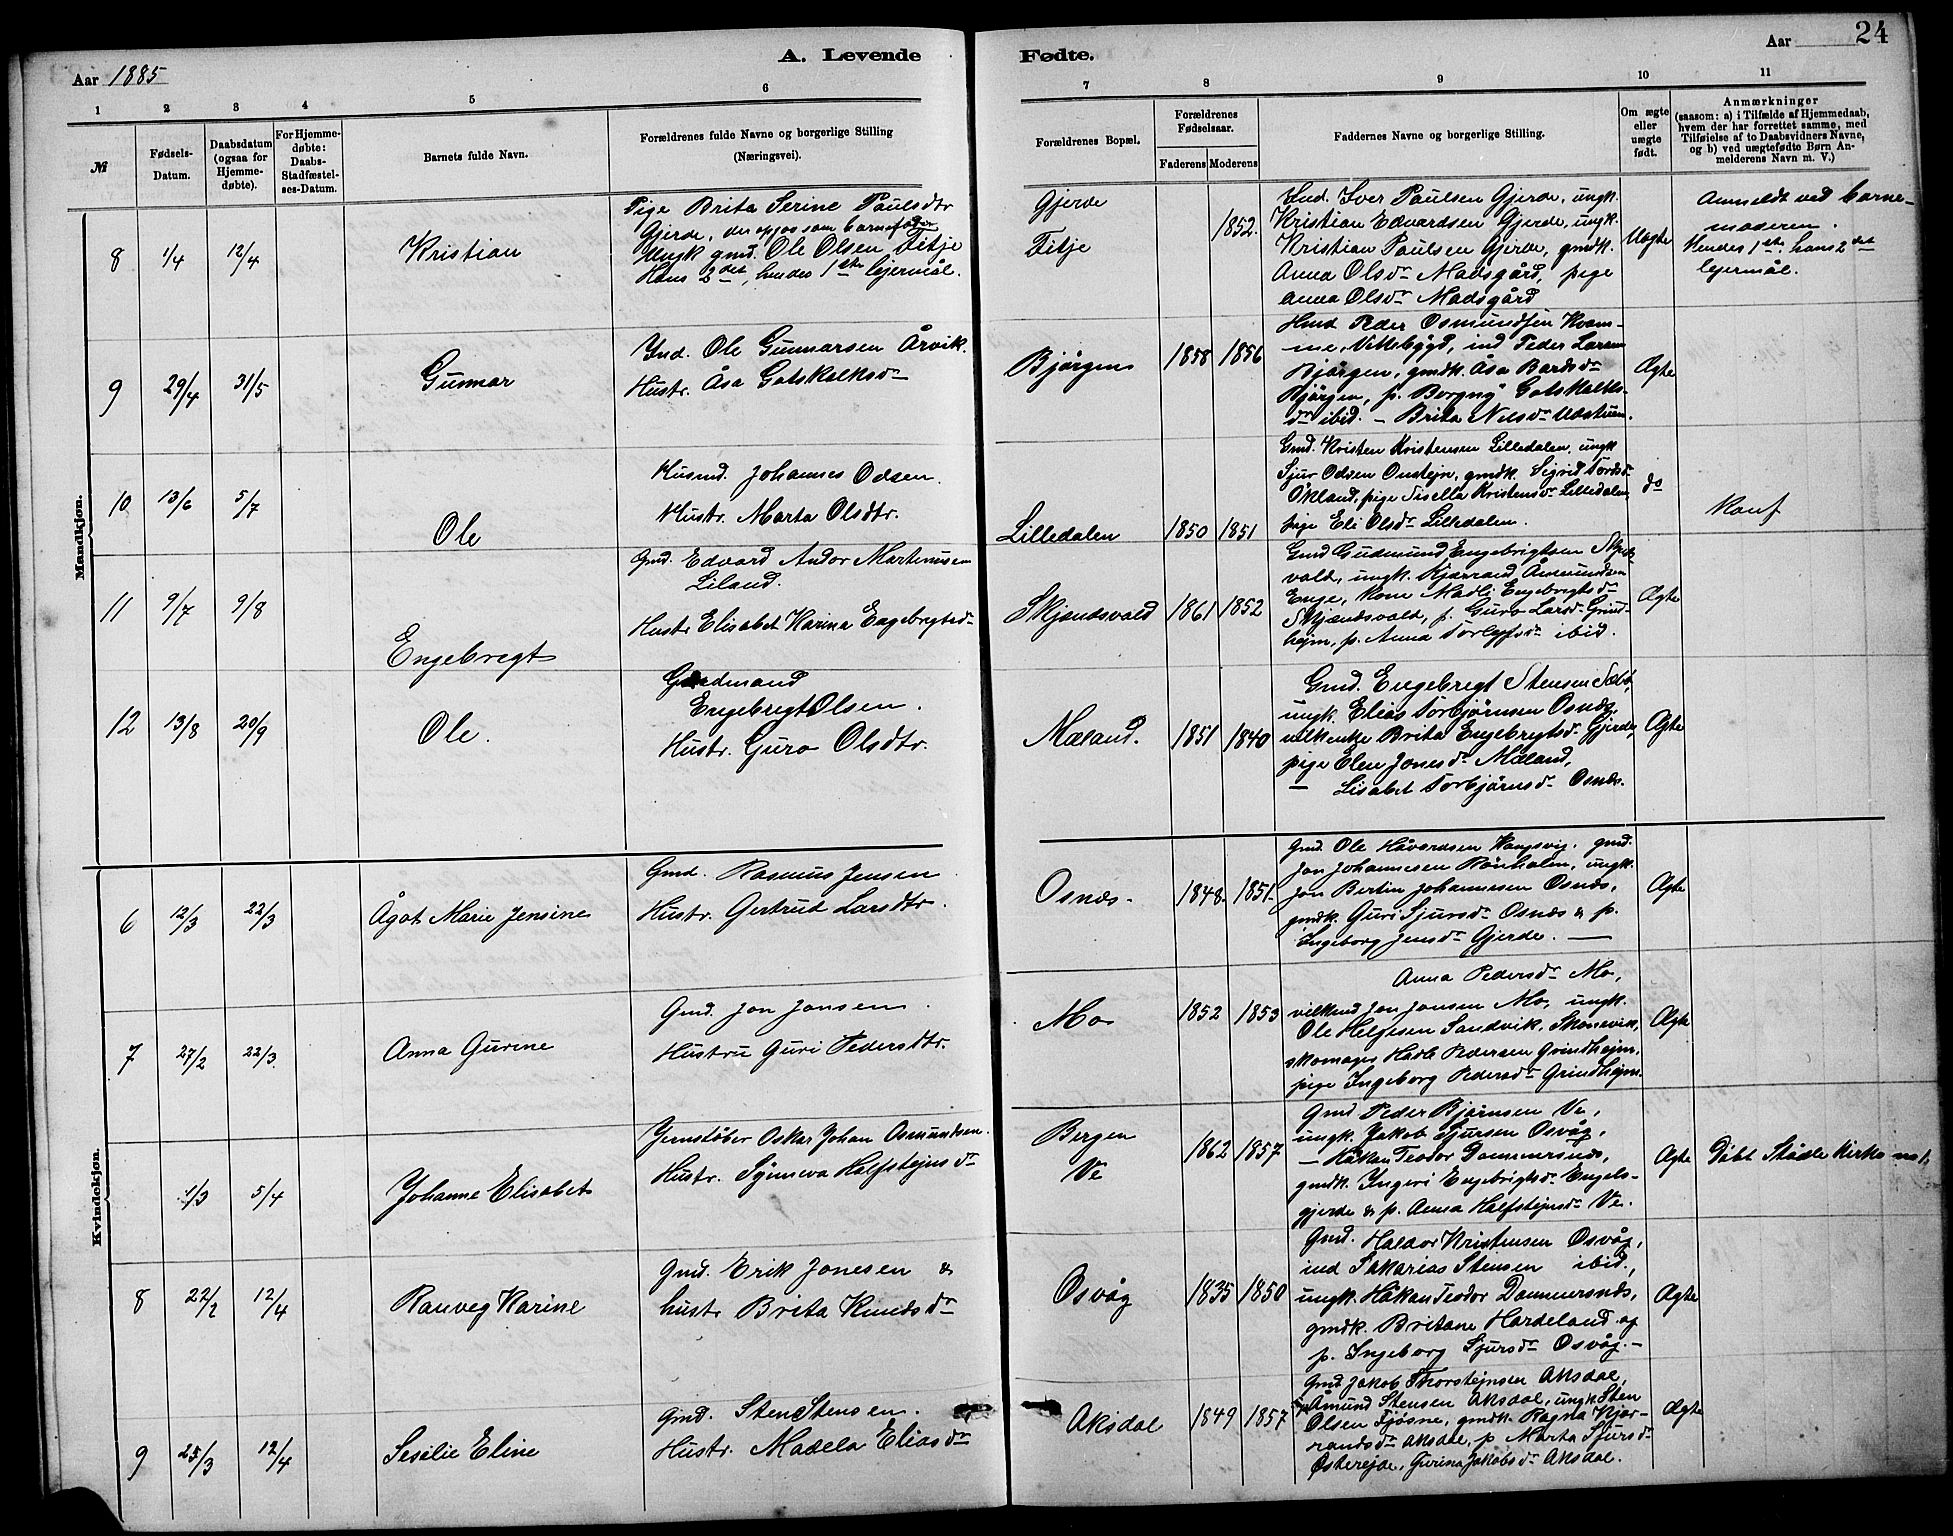 24
A. Levende Fødte.
Aar 1885
Aar
1 2 3 4 5 6 7 8 9 10 11
№
Fødsels-
Datum.
Daabsdatum
(ogsaa for
Hjemme-
døbte).
For Hjemme-
døbte:
Daabs-
Stadfæstel-
ses-Datum.
Barnets fulde Navn.
Forældrenes fulde Navne og borgerlige Stilling
(Næringsvei).
Forældrenes Bopæl.
Forældrenes
Fødselsaar.
Faderens Moderens
Faddernes Navne og borgerlige Stilling.
Om ægte
eller
uægte
født.
Anmærkninger
(saasom: a) i Tilfælde af Hjemmedaab,
hvem der har forrettet samme, med
Tilføielse af to Daabsvidners Navne,
og b) ved uægtefødte Børn An-
melderens Navn m. V.)
Mandkjøn.
8 1/4 12/4
Kristian
Pige Brita Serine Paulsdtr
Gjerde, der opgas som barnefader
Ungk gmd. Ole Olsen Fitje
Hans 2det, hendes 1ste lejermål.
Gjerde
Fitje
1852.
Ind. Iver Paulsen Gjerde, ungk.
Kristian Edvardsen Gjerde, ungk.
Kristian Paulsen Gjerde, gmdk.
Anna Olsdr Madsgård, pige
Anna Olsdr Madsgård
Uægte
Anmeldt ved barne-
moderen.
Hendes 1ste, hans 2det
lejermål.
9 29/4 31/5
Gunnar
Ind. Ole Gunnarsen Årvik.
Hustr. Åsa Gotskalksdr
Bjørgen
1858 1856
Hmd Peder Osmundsen Kvam-
me, Vikebygd, ind Peder Larsen
Bjørgen, gmdk. Åsa Bardsdr
Bjørgen, p. Borgny Gotskalks-
dr ibid. – Brita Nilsdr
Ægte
10 13/6 5/7
Ole
Husmd. Johannes Odsen.
Hustr. Marta Olsdtr.
Lilledalen
1850 1851
Gmd. Kristen Kristensen Lilledalen, ungk
Sjur Odsen Onstejn, gmdk. Sigrid Tordsdr
Økland, pige Sisella Kristensdr Lilledalen,
pige Eli Olsdr Lilledalen.
do
Konf
11 9/7 9/8
Engebregt
Gmd. Edvard Andor Martinusen
Liland.
Hustr Elisabet Karina Engebregtsdr
Skjændsvald
1861 1852
Gmd Gudmund Engebrigtsen Skjæds-
vald, ungk. Kjærrand Åmundsen
Enge, kone Madli Engebregtsdr
Skjændsvald, p. Guro Larsdr Grind-
hejm, p. Anna Torleifsdr ibid.
Ægte
12 13/8 20/9
Ole.
Gardmand
Engebregt Olsen.
Hustr. Guro Olsdtr.
Mæland.
1851 1840
Gmd. Engebregt Stensen Sæbø,
ungk. Elias Torbjørnsen Osnæs,
vilkenke Brita Engebregtsdr Gjerde,
pige Elen Jonesdr Mæland,
— Lisabet Torbjørnsdr Osnæs.
Ægte
Kvindekjøn.
6 12/3 22/3
Ågot Marie Jensine
Gmd. Rasmus Jensen
Hustr. Gertrud Larsdtr.
Osnæs.
1848. 1851.
Gmd. Ole Håvardsen Vangsvig, gmd.
Jon Johannesen Rønholm, ungk.
Jon Bertin Johannesen Osnæs,
gmdk. Guri Sjursdr Osnæs & p.
Ingeborg Jensdr Gjerde. —
Ægte
7 27/2 22/3.
Anna Gurine
Gmd. Jon Jonsen.
Hustru Guri Pedersdtr.
Mo
1852 1853
Anna Pedersdr Mo,
vilkmd Jon Jonsen Mo, ungk.
Ole Helgesen Sandvik, Skonevik,
skomager Hadle Pedersen Grindhejm,
pige Ingeborg Pedersdr Grindhejm.
Ægte
1/3 5/4
Johanne Elisabet
Jernstøber Oskar Johan Osmundsen.
Hustr. Synneva Halfstejnsdr
Bergen
Ve
1862 1857
Gmd Peder Bjørnsen Ve,
ungk. Jakob Sjursen Osvåg,
— Håkan Teodor Dommersnæs,
gmdk. Ingeri Engebrigtsdr Engels-
gjerde & p. Anna Halfstejnsdr Ve.
Ægte
Døbt Stødle Kirke
8 22/2 12/4
Ranveg Karine
Gmd. Erik Jonesen &
hustr Brita Knudsdr
Osvåg
1835 1850
Gmd. Haldor Kristensen Osvåg,
ind Sakarias Stensen ibid.,
ungk. Håkan Teodor Dommersnæs,
gmdk. Britane Hardeland og
p. Ingeborg Sjursdr Osvåg. –
Ægte
9 25/3 12/4
Sesilie Eline
Gmd. Sten Stensen.
Hustr. Madela Eliasdr
Aksdal
1849 1857
Gmd Jakob Thorstejnsen Aksdal,
Åmund Stensen Aksdal, ungk Sten
Olsen Tjøsne, gmdk Ragna Kjær-
randsdr Aksdal, p Marta Sjursdr
Østerejde, Gurina Jakobsdr Aksdal.
Ægte